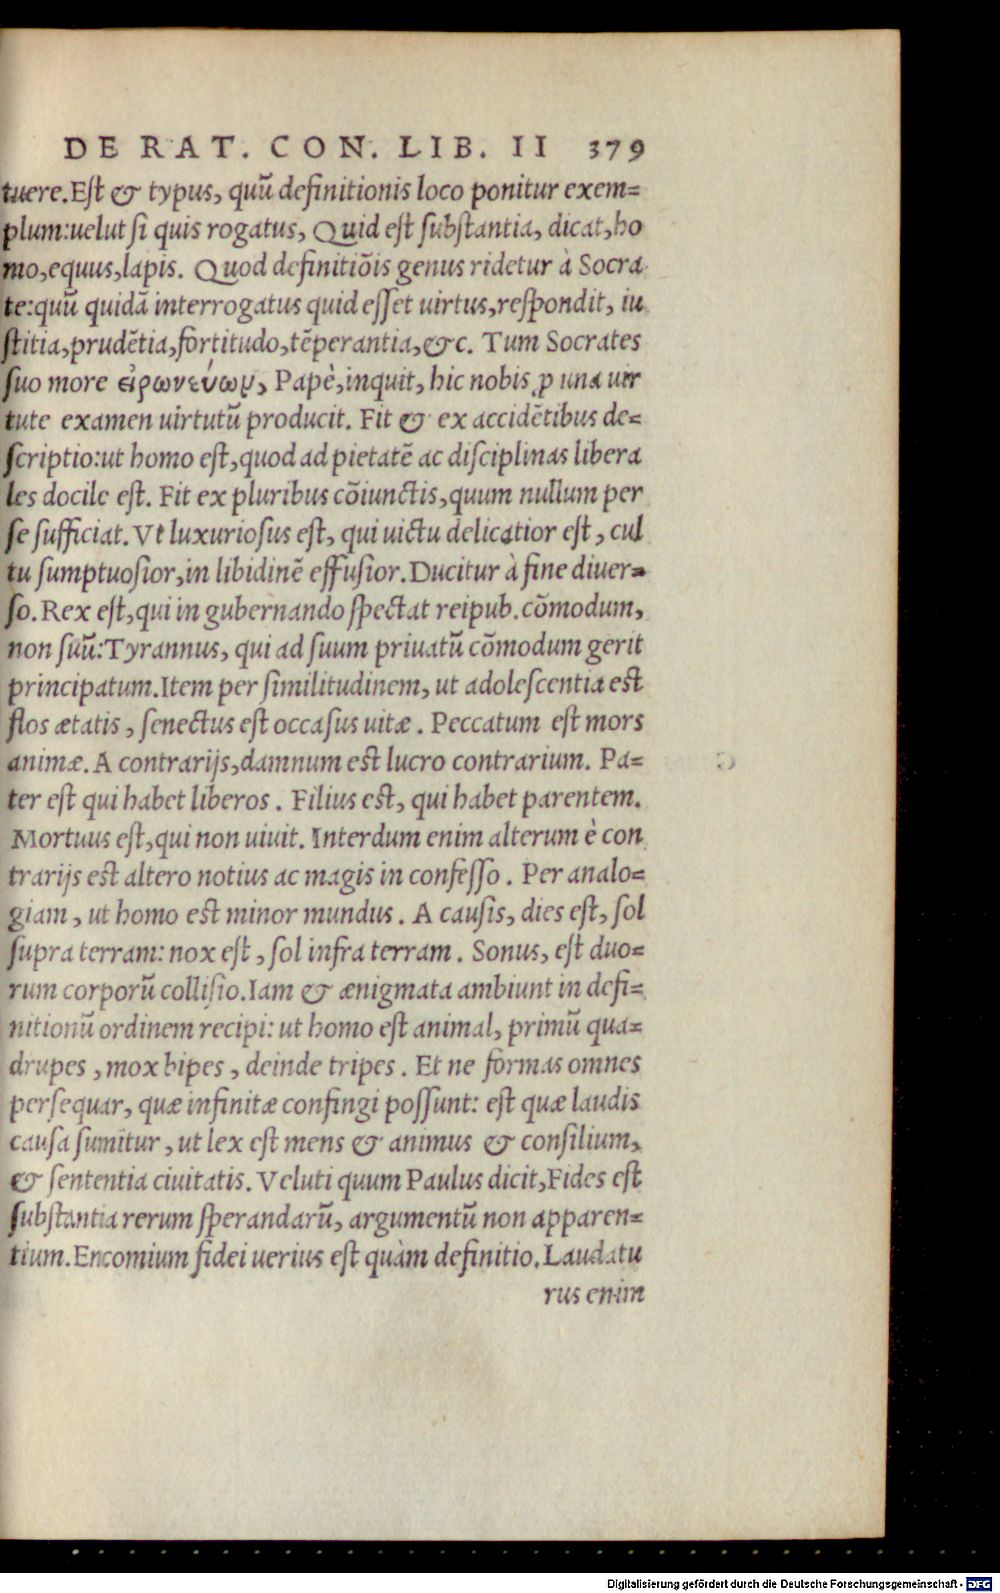 DE RAT. CON. LIB. II 379
tuere. Est & typus, quū definitionis loco ponitur exem=
plum: uelut si quis rogatus, Quid est substantia, dicat, ho
mo, equus, lapis. Quod definitiōis genus ridetur à Socra
te: quū quidā interrogatus quid esset uirtus, respondit, iu
stitia, prudētia, fortitudo, tēperantia, &c. Tum Socrates
suo more εἰρωνεύων, Papè, inquit, hic nobis ꝓ una uir
tute examen uirtutū producit. Fit & ex accidētibus de=
scriptio: ut homo est, quod ad pietatē ac disciplinas libera
les docile est. Fit ex pluribus cōiunctis, quum nullum per
se sufficiat. Vt luxuriosus est, qui uictu delicatior est, cul
tu sumptuosior, in libidinē effusior. Ducitur à fine diuer=
so. Rex est, qui in gubernando spectat reipub. cōmodum,
non suū: Tyrannus, qui ad suum priuatū cōmodum gerit
principatum. Item per similitudinem, ut adolescentia est
flos ætatis, senectus est occasus uitæ. Peccatum est mors
animæ. A contrarijs, damnum est lucro contrarium. Pa=
ter est qui habet liberos. Filius est, qui habet parentem.
Mortuus est, qui non uiuit. Interdum enim alterum è con
trarijs est altero notius ac magis in confesso. Per analo=
giam, ut homo est minor mundus. A causis, dies est, sol
supra terram: nox est, sol infra terram. Sonus, est duo=
rum corporū collisio. Iam & ænigmata ambiunt in defi=
nitionū ordinem recipi: ut homo est animal, primū qua=
drupes, mox bipes, deinde tripes. Et ne formas omnes
persequar, quæ infinitæ confingi possunt: est quæ laudis
causa sumitur, ut lex est mens & animus & consilium,
& sententia ciuitatis. Veluti quum Paulus dicit, Fides est
substantia rerum sperandarū, argumentū non apparen=
tium. Encomium fidei uerius est quàm definitio. Laudatu
rus enim
Digitalisierung gefördert durch die Deutsche Forschungsgemeinschaft - DFG